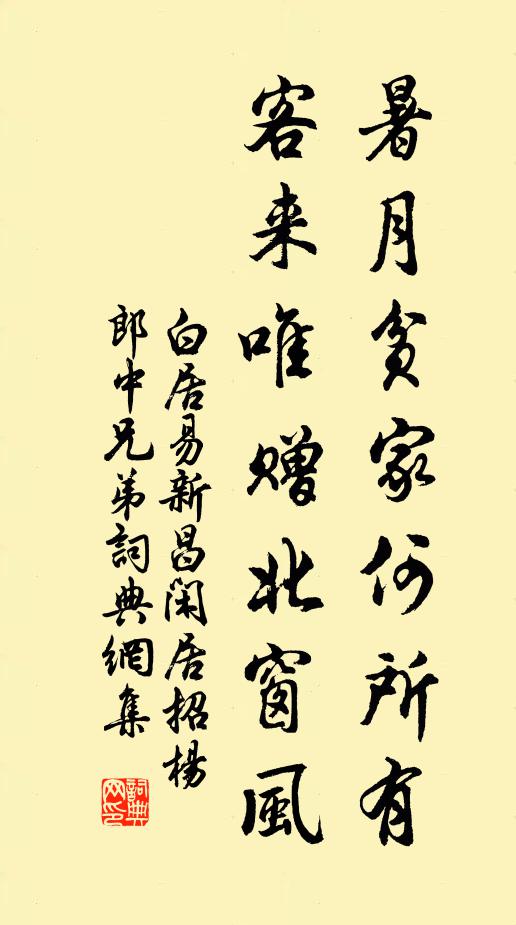 暑月貧家何所有
客来唯贈北窗風
白居易新昌閑居招楊
郎中兄弟詞典網集
詞典
网印